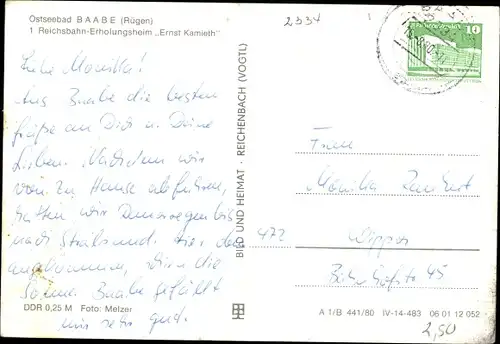 Ostseebad BAABE (Rügen)
1 Reichsbahn-Erholungsheim „Ernst Kamieth"
2334
10
Liebe Monika!
Aus Baabe die besten
Grüße an Dich u. Deine
Lieben. Nachdem wir
von zu Hause abfuhren,
hatten wir Dauerregen bis
nach Stralsund. Hier
angekommen, schien die
Sonne. Baabe gefällt
mir sehr gut.
BILD UND HEIMAT · REICHENBACH (VOGTL)
Frau
Monika
472
45
DDR 0,25 M Foto: Melzer
A 1/B 441/80 IV-14-483 06 01 12 052
2,50